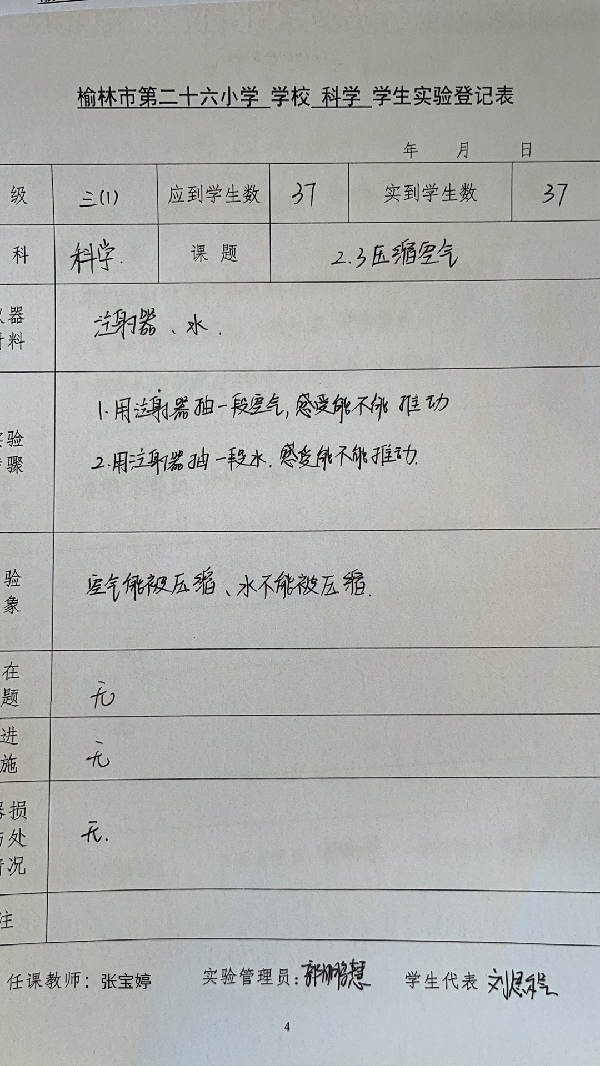 榆林市第二十六小学 学校 科学 学生实验登记表
年 月 日
级 三(1) 应到学生数 37 实到学生数 37
科 科学. 课题 2.3压缩空气
仪器
材料
注射器、水.
实验
步骤
1.用注射器抽一段空气,感受能不能推动
2.用注射器抽一段水.感受能不能推动.
验
象
空气能被压缩、水不能被压缩.
在
题
无
进
施
无
损
处
情况
无.
注
任课教师:张宝婷 实验管理员: 学生代表
4